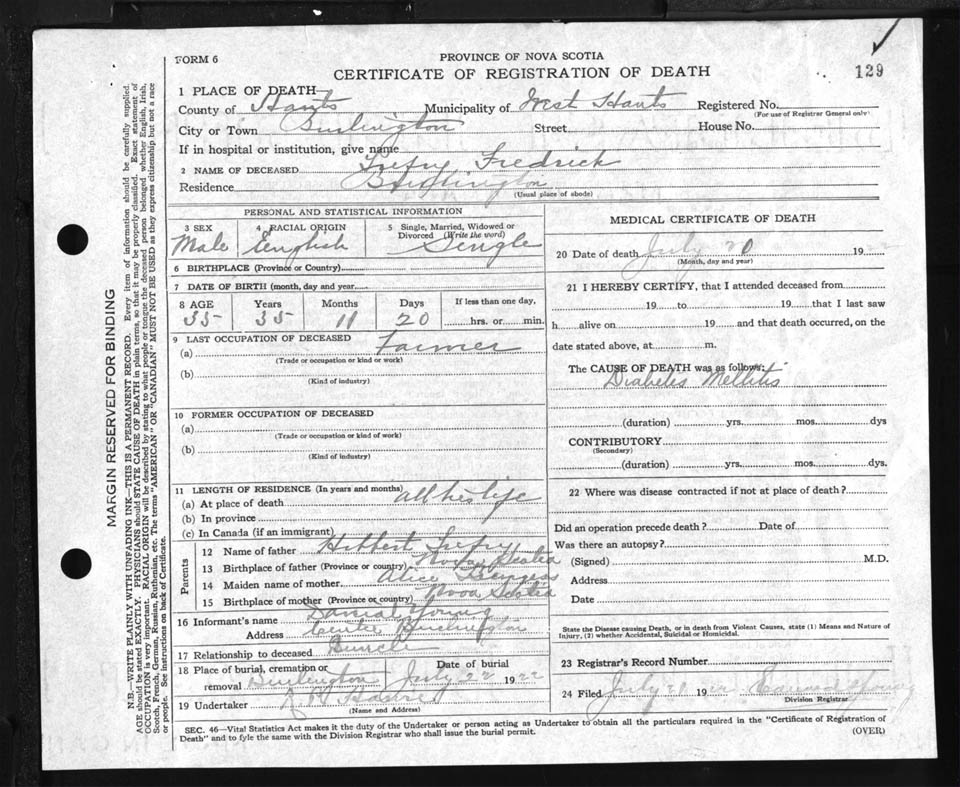 FORM 6
PROVINCE OF NOVA SCOTIA
CERTIFICATE OF REGISTRATION OF DEATH
129
1 PLACE OF DEATH—
County of Hants Municipality of West Hants Registered No.
(For use of Registrar General only)
City or Town Burlington Street House No.
If in hospital or institution, give name
2 NAME OF DECEASED Trefry Fredrick
Residence Burlington
(Usual place of abode)
PERSONAL AND STATISTICAL INFORMATION
3 SEX Male
4 RACIAL ORIGIN English
5 Single, Married, Widowed or Divorced (Write the word) Single
6 BIRTHPLACE (Province or Country)
7 DATE OF BIRTH (month, day and year)
8 AGE Years Months Days If less than one day,
35 35 11 20 hrs. or min.
9 LAST OCCUPATION OF DECEASED
(a) Farmer
(Trade or occupation or kind or work)
(b)
(Kind of industry)
10 FORMER OCCUPATION OF DECEASED
(a)
(Trade or occupation or kind of work)
(b)
(Kind of industry)
11 LENGTH OF RESIDENCE (In years and months)
(a) At place of death all his life
(b) In province
(c) In Canada (if an immigrant)
Parents
12 Name of father Hibbert Trefry
13 Birthplace of father (Province or country) Nova Scotia
14 Maiden name of mother Alice Burgess
15 Birthplace of mother (Province or country) Nova Scotia
16 Informant's name Daniel Young
Address Center Burlington
17 Relationship to deceased
18 Place of burial, cremation or removal Burlington
Date of burial July 22 1922
19 Undertaker
(Name and Address)
MEDICAL CERTIFICATE OF DEATH
20 Date of death July 20 1922
(Month, day and year)
21 I HEREBY CERTIFY, that I attended deceased from
19 to 19 that I last saw
h alive on 19 and that death occurred, on the
date stated above, at m.
The CAUSE OF DEATH was as follows:
Diabetes Mellitis
(duration) yrs. mos. dys
CONTRIBUTORY
(Secondary)
(duration) yrs. mos. dys.
22 Where was disease contracted if not at place of death?
Did an operation precede death? Date of
Was there an autopsy?
(Signed) M.D.
Address
Date
State the Disease causing Death, or in death from Violent Causes, state (1) Means and Nature of
Injury, (2) whether Accidental, Suicidal or Homicidal.
23 Registrar's Record Number
24 Filed July 1922 Young
Division Registrar
SEC. 46—Vital Statistics Act makes it the duty of the Undertaker or person acting as Undertaker to obtain all the particulars required in the "Certificate of Registration of
Death" and to fyle the same with the Division Registrar who shall issue the burial permit.
(OVER)
MARGIN RESERVED FOR BINDING
N.B.—WRITE PLAINLY WITH UNFADING INK—THIS IS A PERMANENT RECORD. Every item of information should be carefully supplied.
AGE should be stated EXACTLY. PHYSICIANS should STATE CAUSE OF DEATH in plain terms, so that it may be properly classified. Exact statement of
OCCUPATION is very important. RACIAL ORIGIN will be described by stating to what people or tongue the deceased person belonged whether English, Irish,
Scotch, French, German, Russian, Ruthenian, etc. The terms "AMERICAN" or "CANADIAN" MUST NOT BE USED as they express citizenship but not a race
or people. See instructions on back of Certificate.